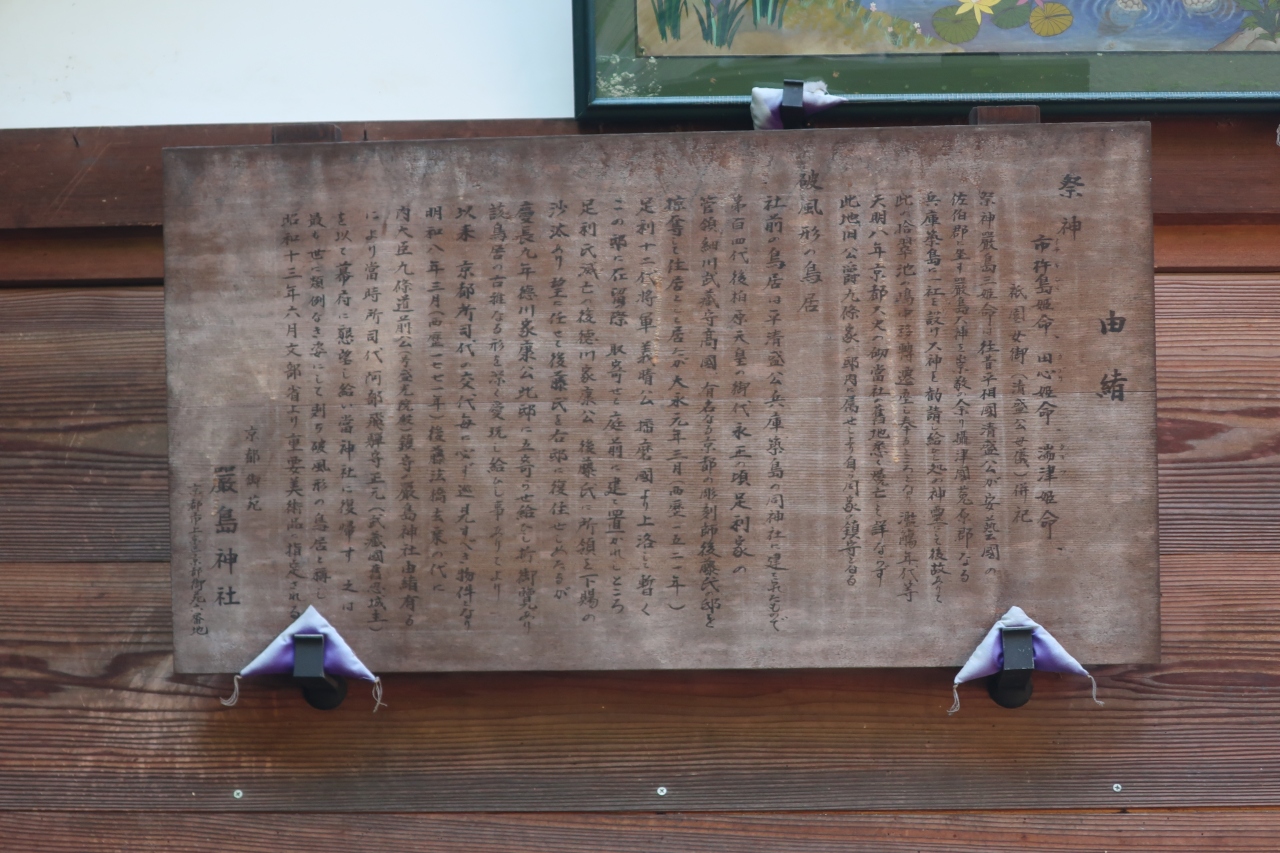 由緒
祭神
市杵島姫命、田心姫命、湍津姫命、
祇園女御(清盛公母儀)併祀
祭神嚴島三姫命は往昔平相國清盛公が安藝國の
佐伯郡に坐す嚴島大神を崇敬の余り攝津國菟原郡なる
兵庫築島に一社を設け大神を勧請し給
此の拾翠池の嶋中
天明八年京都大火の砌當社も舊地悉く
此地旧公爵九條家の邸内に属せしより自ら同家の鎮守たる
破風形の鳥居
社前の鳥居は平清盛公兵庫築島の同神社に建てられたもので
第百四代後柏原天皇の御代永正の頃足利家の
管領細川武蔵守高國有名なる京都の彫刻師後藤氏の邸を
掠奪して住居として居たが大永元年三月(西暦一五二一年)
足利十二代将軍義晴公播磨國より上洛し暫く
この邸に在留の際取寄せ庭前に建置かれしところ
足利氏滅亡の後徳川家康公後藤氏に所領を下賜の
沙汰あり
慶長九年徳川家康公此邸に立寄らせ給ひし折御覧あり
該鳥居の古雅なる形を深く愛玩し給ひし事ありしより
以来京都所司代の交代毎に必ず巡見すべき物件となり
明和八年三月(西暦一七七一年)後藤法橋去東の代に
内大臣九條道前公
により當時所司代阿部飛騨守正元(武蔵國
を以て幕府に懇望し給い當神社に復帰す 之は
最も世に類例なき姿にして則ち破風形の鳥居と稱し
昭和十三年六月文部省より重要美術品に指定される
京都御苑
嚴島神社
京都市上京区京都御苑六番地